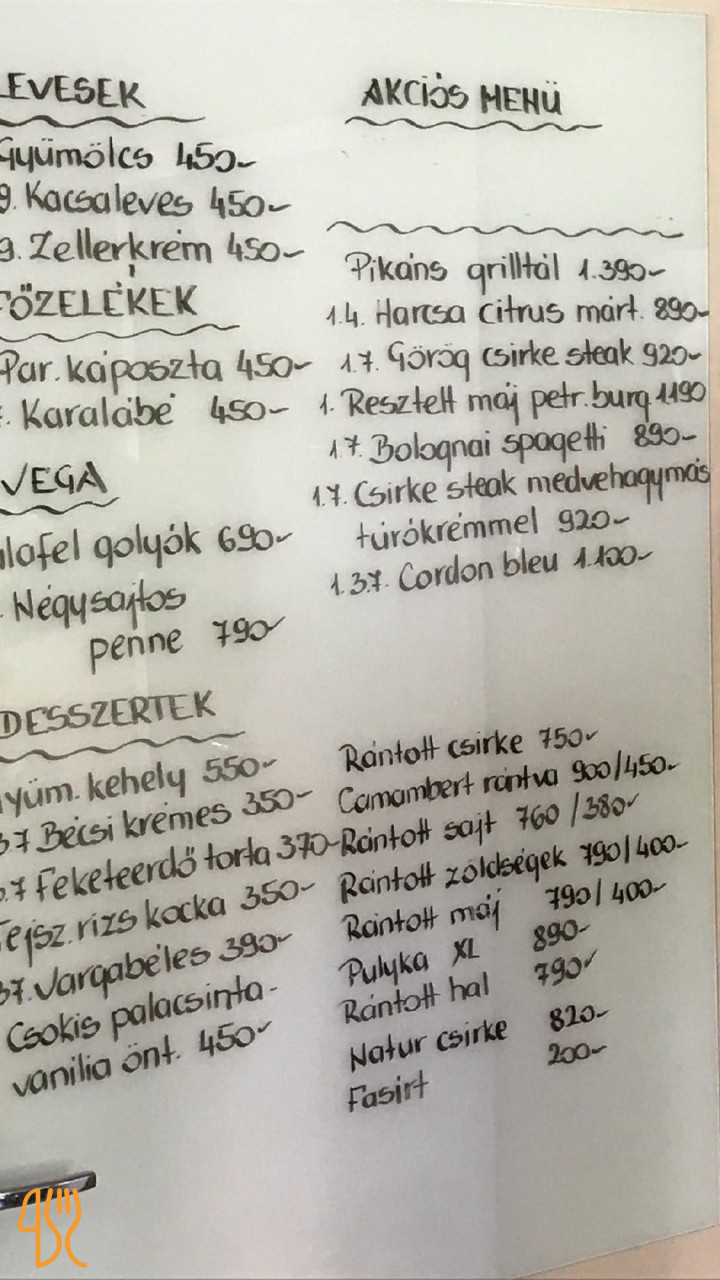 LEVESEK
Gyümölcs 450-
9. Kacsaleves 450-
9. Zellerkrém 450-
FŐZELÉKEK
Par. káposzta 450-
Karalábé 450-
VEGA
alafel golyók 690-
Négysajtos
penne 790-
DESSZERTEK
yüm. kehely 550-
37 Bécsi krémes 350-
.7 Feketeerdő torta 370-
Tejsz. rizs kocka 350-
37. Vargabéles 390-
Csokis palacsinta-
vanilia önt. 450-
AKCIÓS MENÜ
Pikáns grilltál 1.390-
1.4. Harcsa citrus márt. 890-
1.7. Görög csirke steak 920-
1. Resztelt máj petr. burg 1190
1.7. Bolognai spagetti 890-
1.7. Csirke steak medvehagymás
túrókrémmel 920-
1.3.7. Cordon bleu 1.100-
Rántott csirke 750-
Camambert rántva 900/450-
Rántott sajt 760/380-
Rántott zöldségek 790/400-
Rántott máj 790/400-
Pulyka XL 890-
Rántott hal 790-
Natur csirke 820-
Fasirt 200-